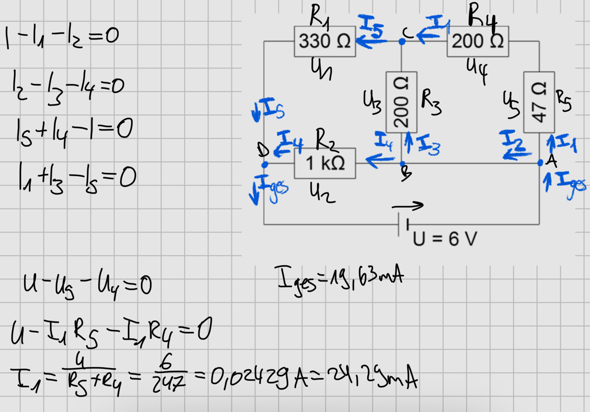 I - I₁ - I₂ = 0
I₂ - I₃ - I₄ = 0
I₅ + I₄ - I = 0
I₁ + I₃ - I₅ = 0
R₁
I₅
C
I₁
R₄
330 Ω
200 Ω
U₁
U₄
U₃
200 Ω
R₃
U₅
47 Ω
R₅
I₅
D
I₄
R₂
I₄
I₃
I₂
I₁
A
1 kΩ
B
Iges
U₂
Iges
U = 6 V
U - U₅ - U₄ = 0
Iges = 19,63mA
U - I₁R₅ - I₁R₄ = 0
I₁ = U / R₅+R₄ = 6 / 247 = 0,02429A = 24,29mA